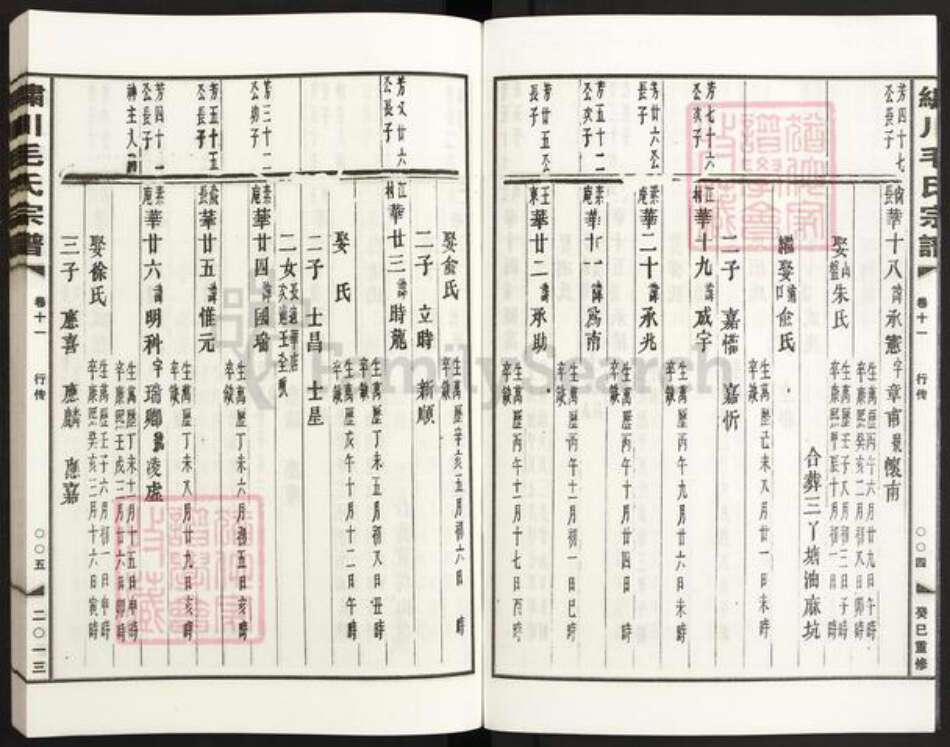 繡川毛氏宗譜
卷十一
行传
〇〇四
癸巳重修
芳四十七
公長子
華十八諱承憲字章甫號懷南
生萬歷丙午六月廿九日午時
卒康熙癸亥二月初又日卯時
娶山盤朱氏
生萬歷壬子八月初三日子時
卒康熙甲辰十月十六日
合葬三丫塘油麻坑
繼娶 俞氏
芳七十六
公次子
江村
華十九諱咸字
生萬歷己未又月廿一日未時
卒缺
二子 嘉 嘉忻
芳廿六公
長子
素庵
華二十諱承兆
生萬歷丙午九月廿六日未時
卒缺
芳五十二
公次子
素庵
華廿一諱為南
生萬歷丙午十月廿四日
卒缺
芳廿五公
長子
王東
華廿二諱承助
生萬歷丙午十一月初一日巳時
卒缺
生萬歷丙午十一月十七日丙時
卒缺
芳又廿六
公長子
江村
華廿三諱時龍
二子 立時 新順
娶俞氏
生萬歷辛亥五月初六日 時
卒缺
生萬歷丁未五月初又日丑時
卒缺
娶 氏
生萬歷戊午十月十二日午時
卒缺
二子 士昌 士星
二女
芳三十二
公幼子
素庵
華廿四諱國瑞
生萬歷丁未六月初五日亥時
卒缺
芳五十五
公長子
華廿五諱惟元
生萬歷丁未又月廿九日亥時
卒缺
芳四十一
公長子
神主入祠
素庵
華廿六諱明科字瑞卿號凌虛
生萬歷丁未十一月十五日申時
卒康熙壬戌二月廿六日卯時
娶徐氏
生萬歷壬子六月初一日申時
卒康熙癸亥三月十六日寅時
三子 應喜 應麟 應嘉
繡川毛氏宗譜
卷十一
行传
〇〇五
二〇一三
FamilySearch